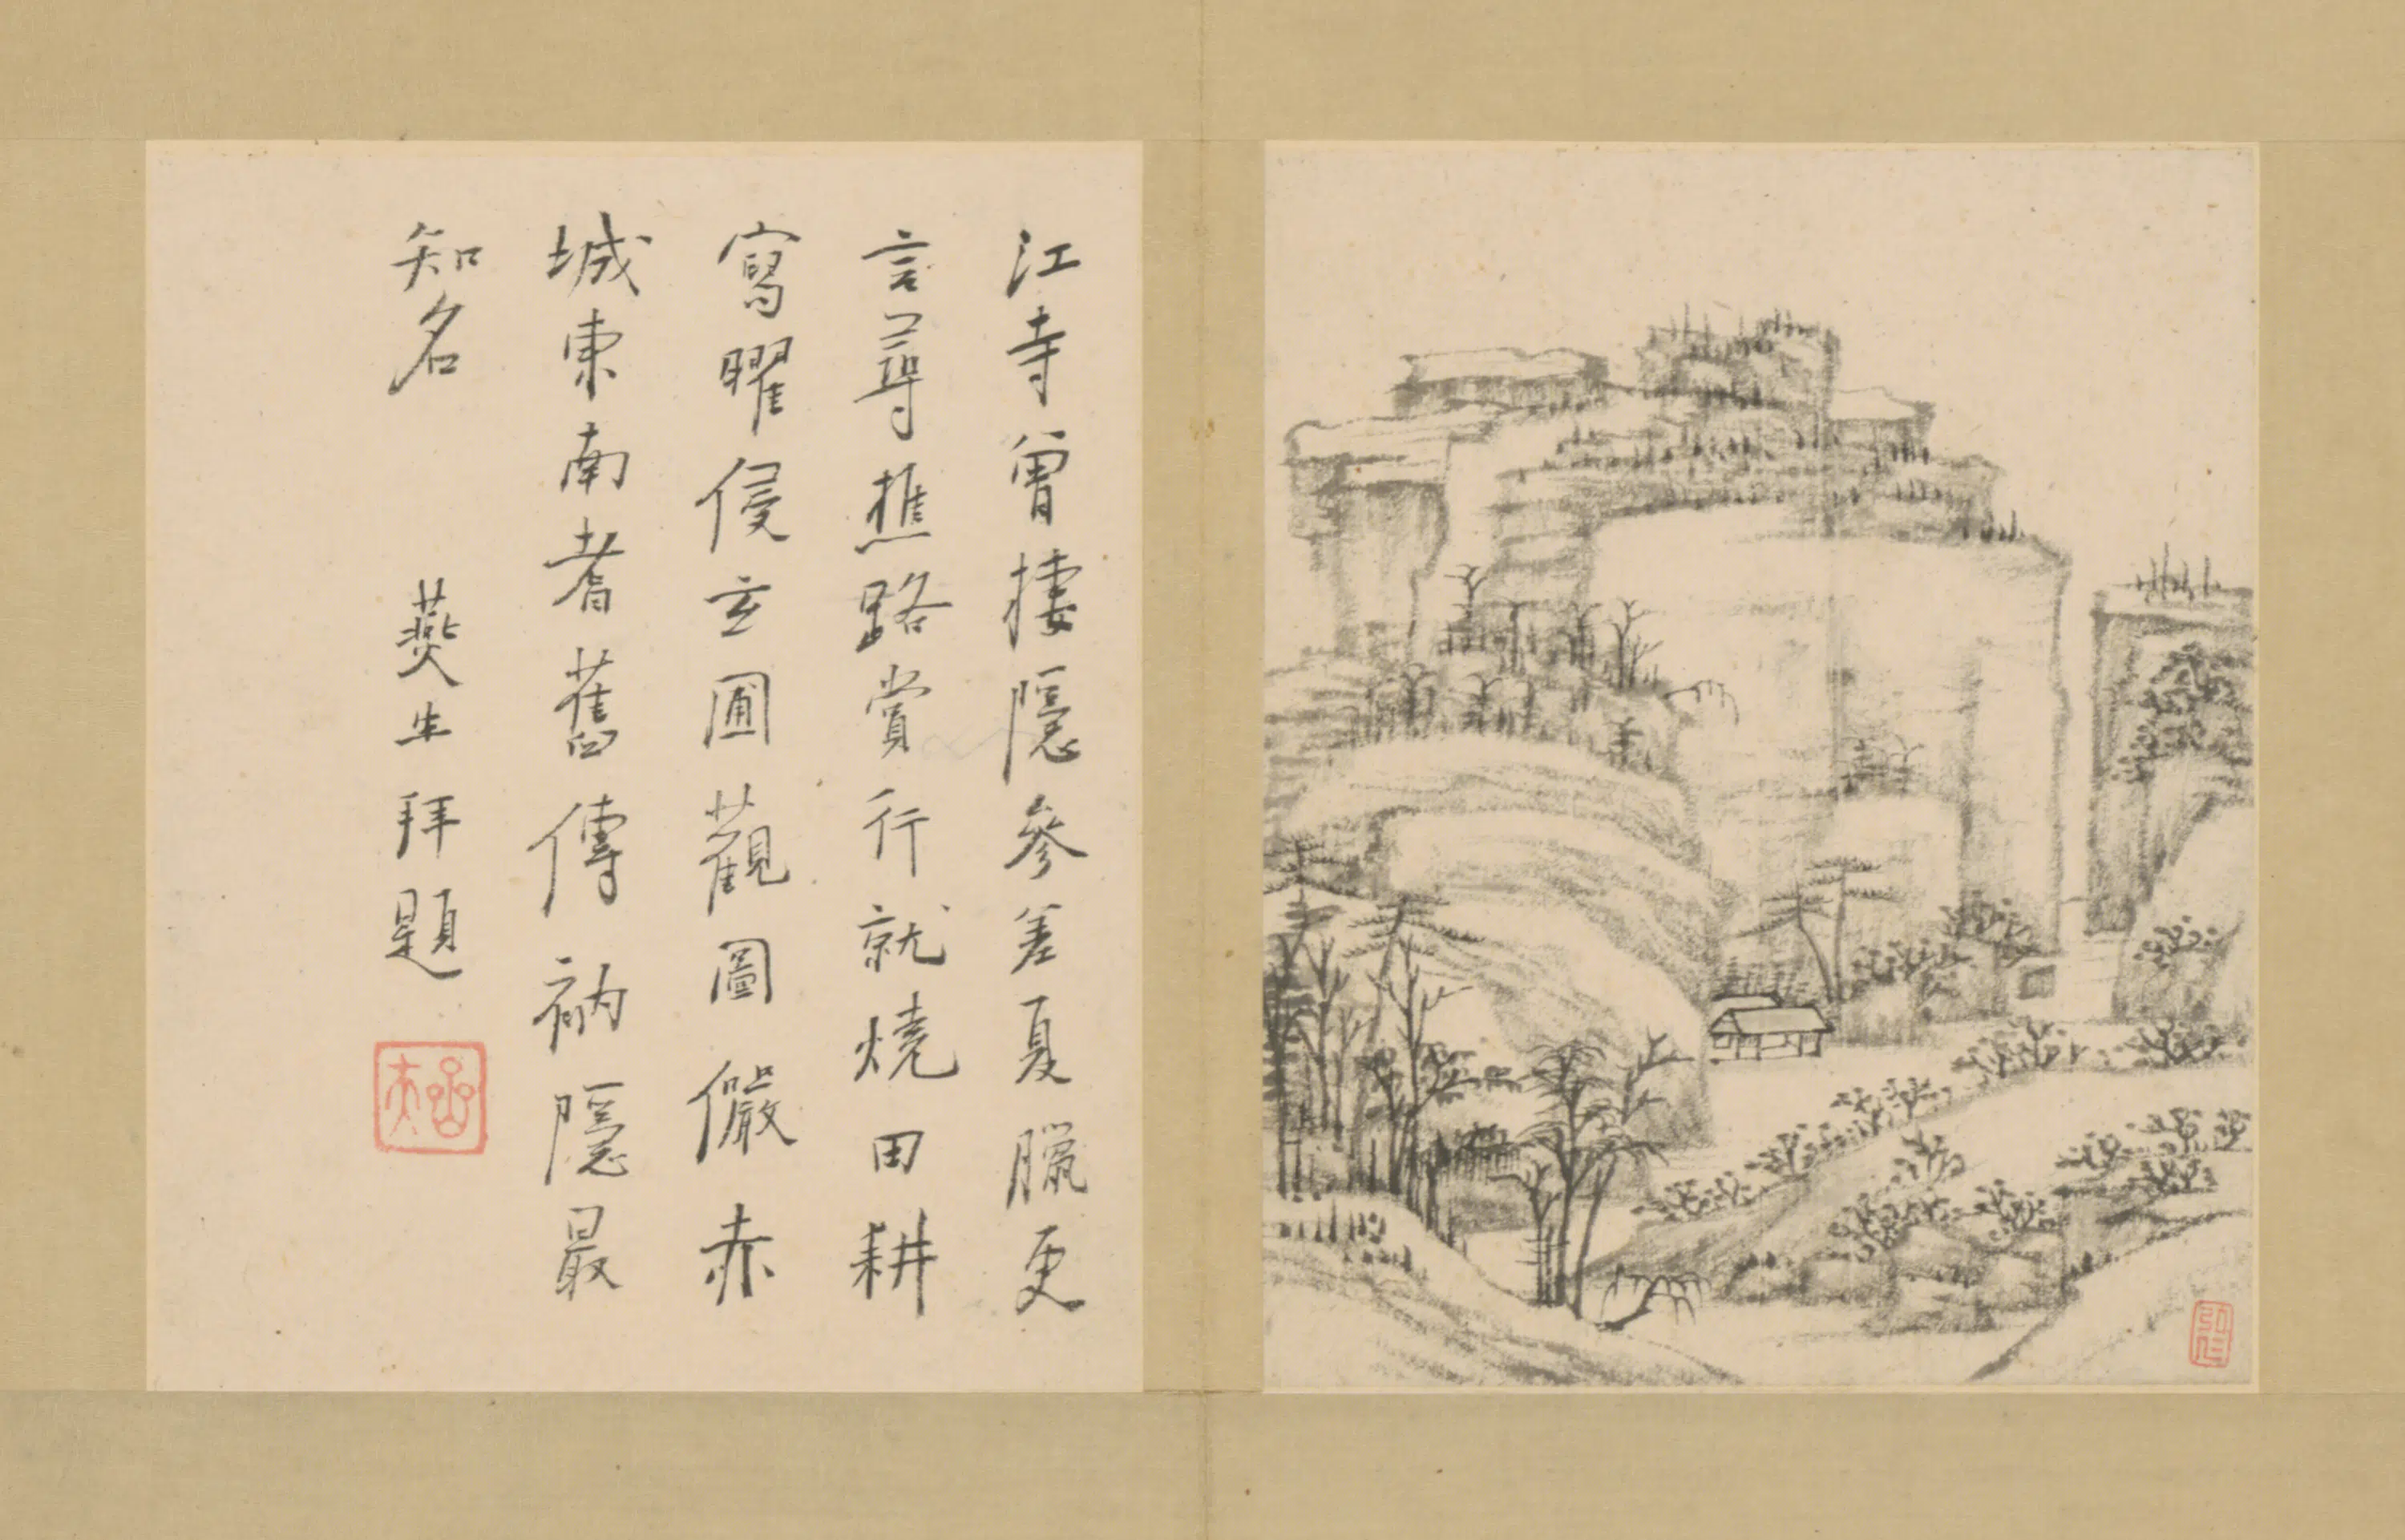 江寺曾捿隱參差夏臘更
言尋樵路賞行就燒田耕
寫曜侵玄圃觀圖儼赤
城東南耆舊傳衲隱最
知名
燕生拜題